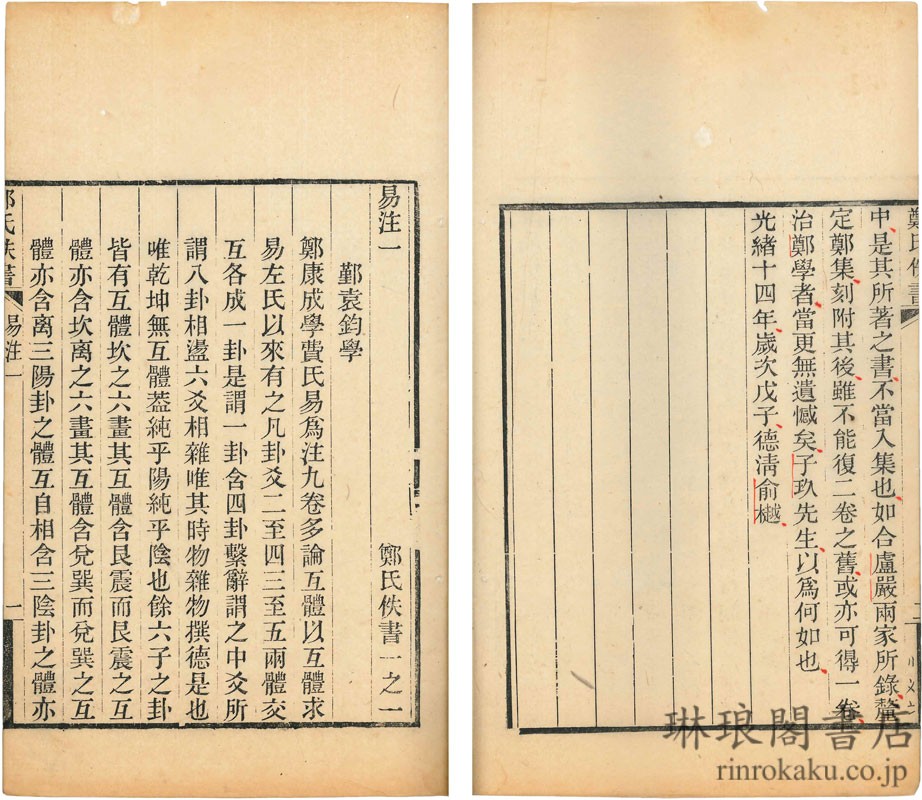 鄭氏佚書
中是其所著之書不當入集也如合盧嚴兩家所錄釐
定鄭集刻附其後雖不能復二卷之舊或亦可得一卷
治鄭學者當更無遺憾矣子玖先生以爲何如也
光緒十四年歲次戊子德淸俞樾
易注一 鄭氏佚書一之一
鄞袁鈞學
鄭康成學費氏易爲注九卷多論互體以互體求
易左氏以來有之凡卦爻二至四三至五兩體交
互各成一卦是謂一卦含四卦繫辭謂之中爻所
謂八卦相盪六爻相雜唯其時物雜物撰德是也
唯乾坤無互體葢純乎陽純乎陰也餘六子之卦
皆有互體坎之六畫其互體含艮震而艮震之互
體亦含坎離之六畫其互體含兌巽而兌巽之互
體亦含離三陽卦之體互自相含三陰卦之體亦
鄭氏佚書 易注一 一
琳琅閣書店
rinrokaku.co.jp